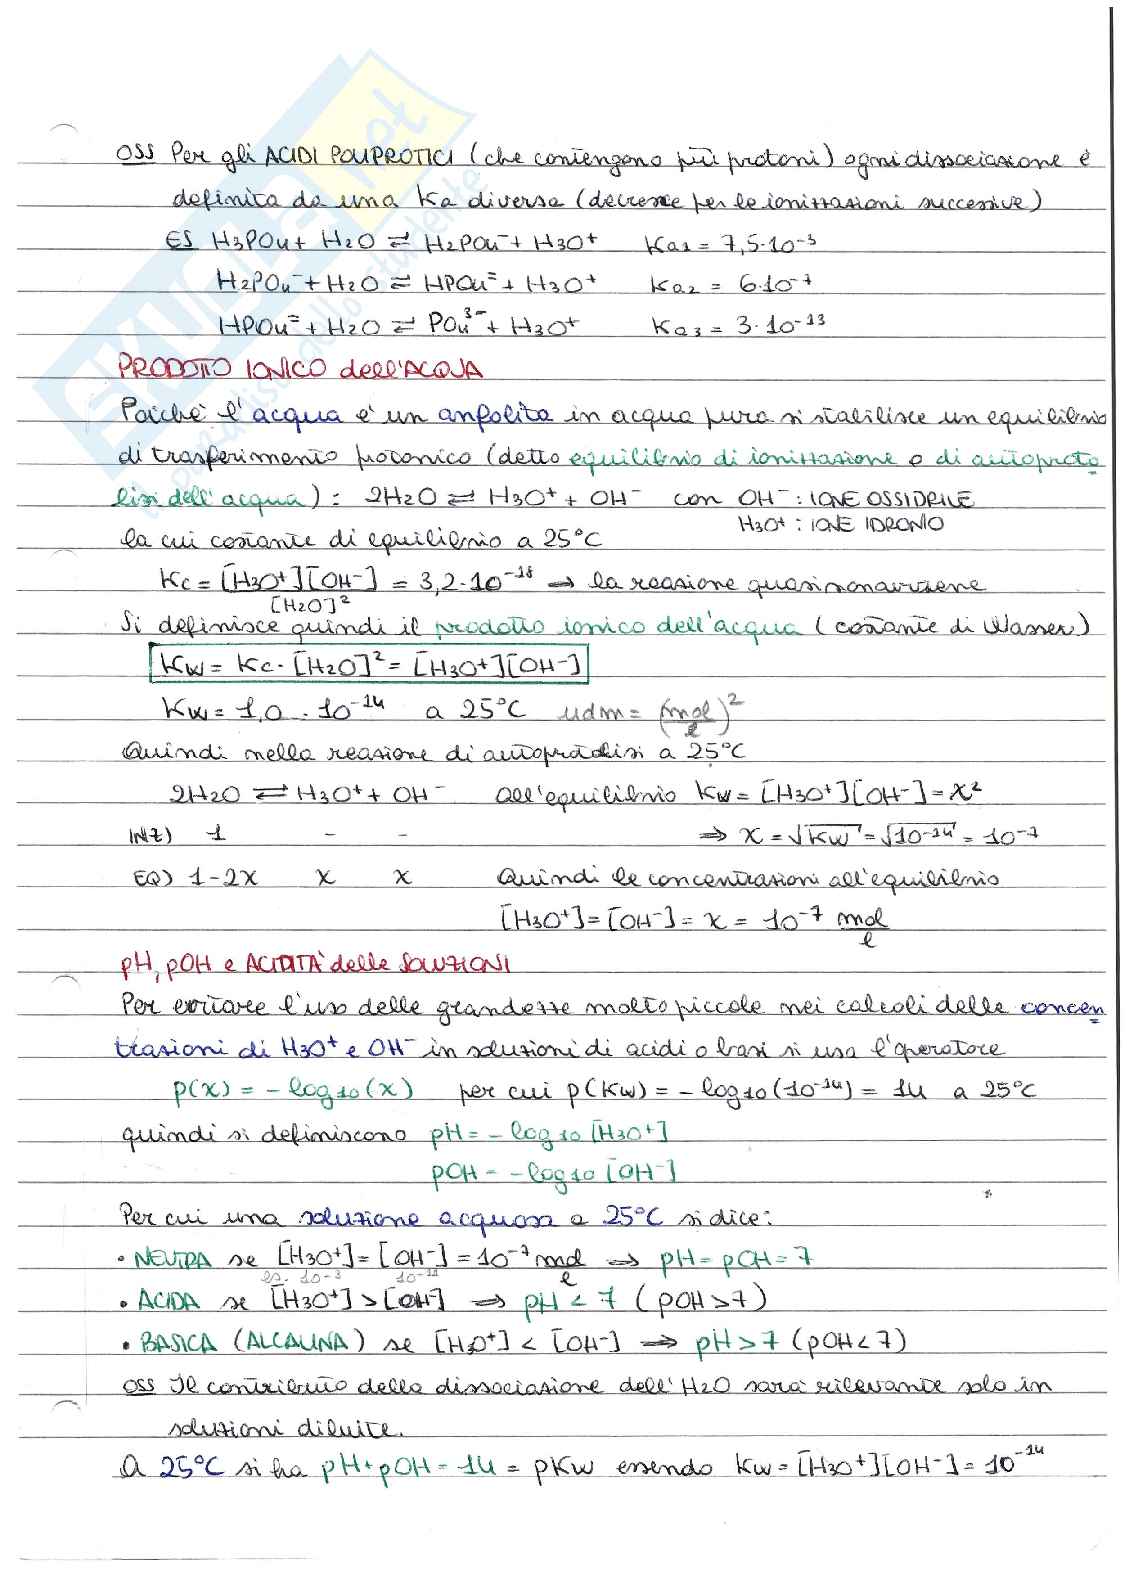 OSS Per gli ACIDI POLIPROTICI (che contengono più protoni) ogni dissociazione è
definita da una Ka diversa (decresce per le ionizzazioni successive)
ES H3PO4 + H2O ⇌ H2PO4⁻ + H3O⁺ Ka1 = 7,5·10⁻³
H2PO4⁻ + H2O ⇌ HPO4⁼ + H3O⁺ Ka2 = 6·10⁻⁷
HPO4⁼ + H2O ⇌ PO4³⁻ + H3O⁺ Ka3 = 3·10⁻¹³
PRODOTTO IONICO dell'ACQUA
Poiché l'acqua è un anfolita in acqua pura si stabilisce un equilibrio
di trasferimento protonico (detto equilibrio di ionizzazione o di autoproto
lisi dell'acqua): 2H2O ⇌ H3O⁺ + OH⁻ con OH⁻: IONE OSSIDRILE
H3O⁺: IONE IDRONIO
la cui costante di equilibrio a 25°C
Kc = [H3O⁺][OH⁻]/[H2O]² = 3,2·10⁻¹⁸ → la reazione quasi non avviene
Si definisce quindi il prodotto ionico dell'acqua (costante di Wasser)
Kw = Kc·[H2O]² = [H3O⁺][OH⁻]
Kw = 1,0·10⁻¹⁴ a 25°C udm = (mol/l)²
Quindi nella reazione di autoprotolisi a 25°C
2H2O ⇌ H3O⁺ + OH⁻ all'equilibrio Kw = [H3O⁺][OH⁻] = x²
INIZ) 1 - - ⇒ x = √Kw = √10⁻¹⁴ = 10⁻⁷
EQ) 1-2x x x Quindi le concentrazioni all'equilibrio
[H3O⁺] = [OH⁻] = x = 10⁻⁷ mol/l
pH, pOH e ACIDITÀ delle SOLUZIONI
Per evitare l'uso delle grandezze molto piccole nei calcoli delle concen
trazioni di H3O⁺ e OH⁻ in soluzioni di acidi o basi si usa l'operatore
p(x) = -log10(x) per cui p(Kw) = -log10(10⁻¹⁴) = 14 a 25°C
quindi si definiscono pH = -log10[H3O⁺]
pOH = -log10[OH⁻]
Per cui una soluzione acquosa a 25°C si dice:
• NEUTRA se [H3O⁺] = [OH⁻] = 10⁻⁷ mol/l ⇒ pH = pOH = 7
es. 10⁻³ 10⁻¹¹
• ACIDA se [H3O⁺] > [OH⁻] ⇒ pH < 7 (pOH > 7)
• BASICA (ALCALINA) se [H3O⁺] < [OH⁻] ⇒ pH > 7 (pOH < 7)
OSS Il contributo della dissociazione dell'H2O sarà rilevante solo in
soluzioni diluite.
A 25°C si ha pH + pOH = 14 = pKw essendo Kw = [H3O⁺][OH⁻] = 10⁻¹⁴